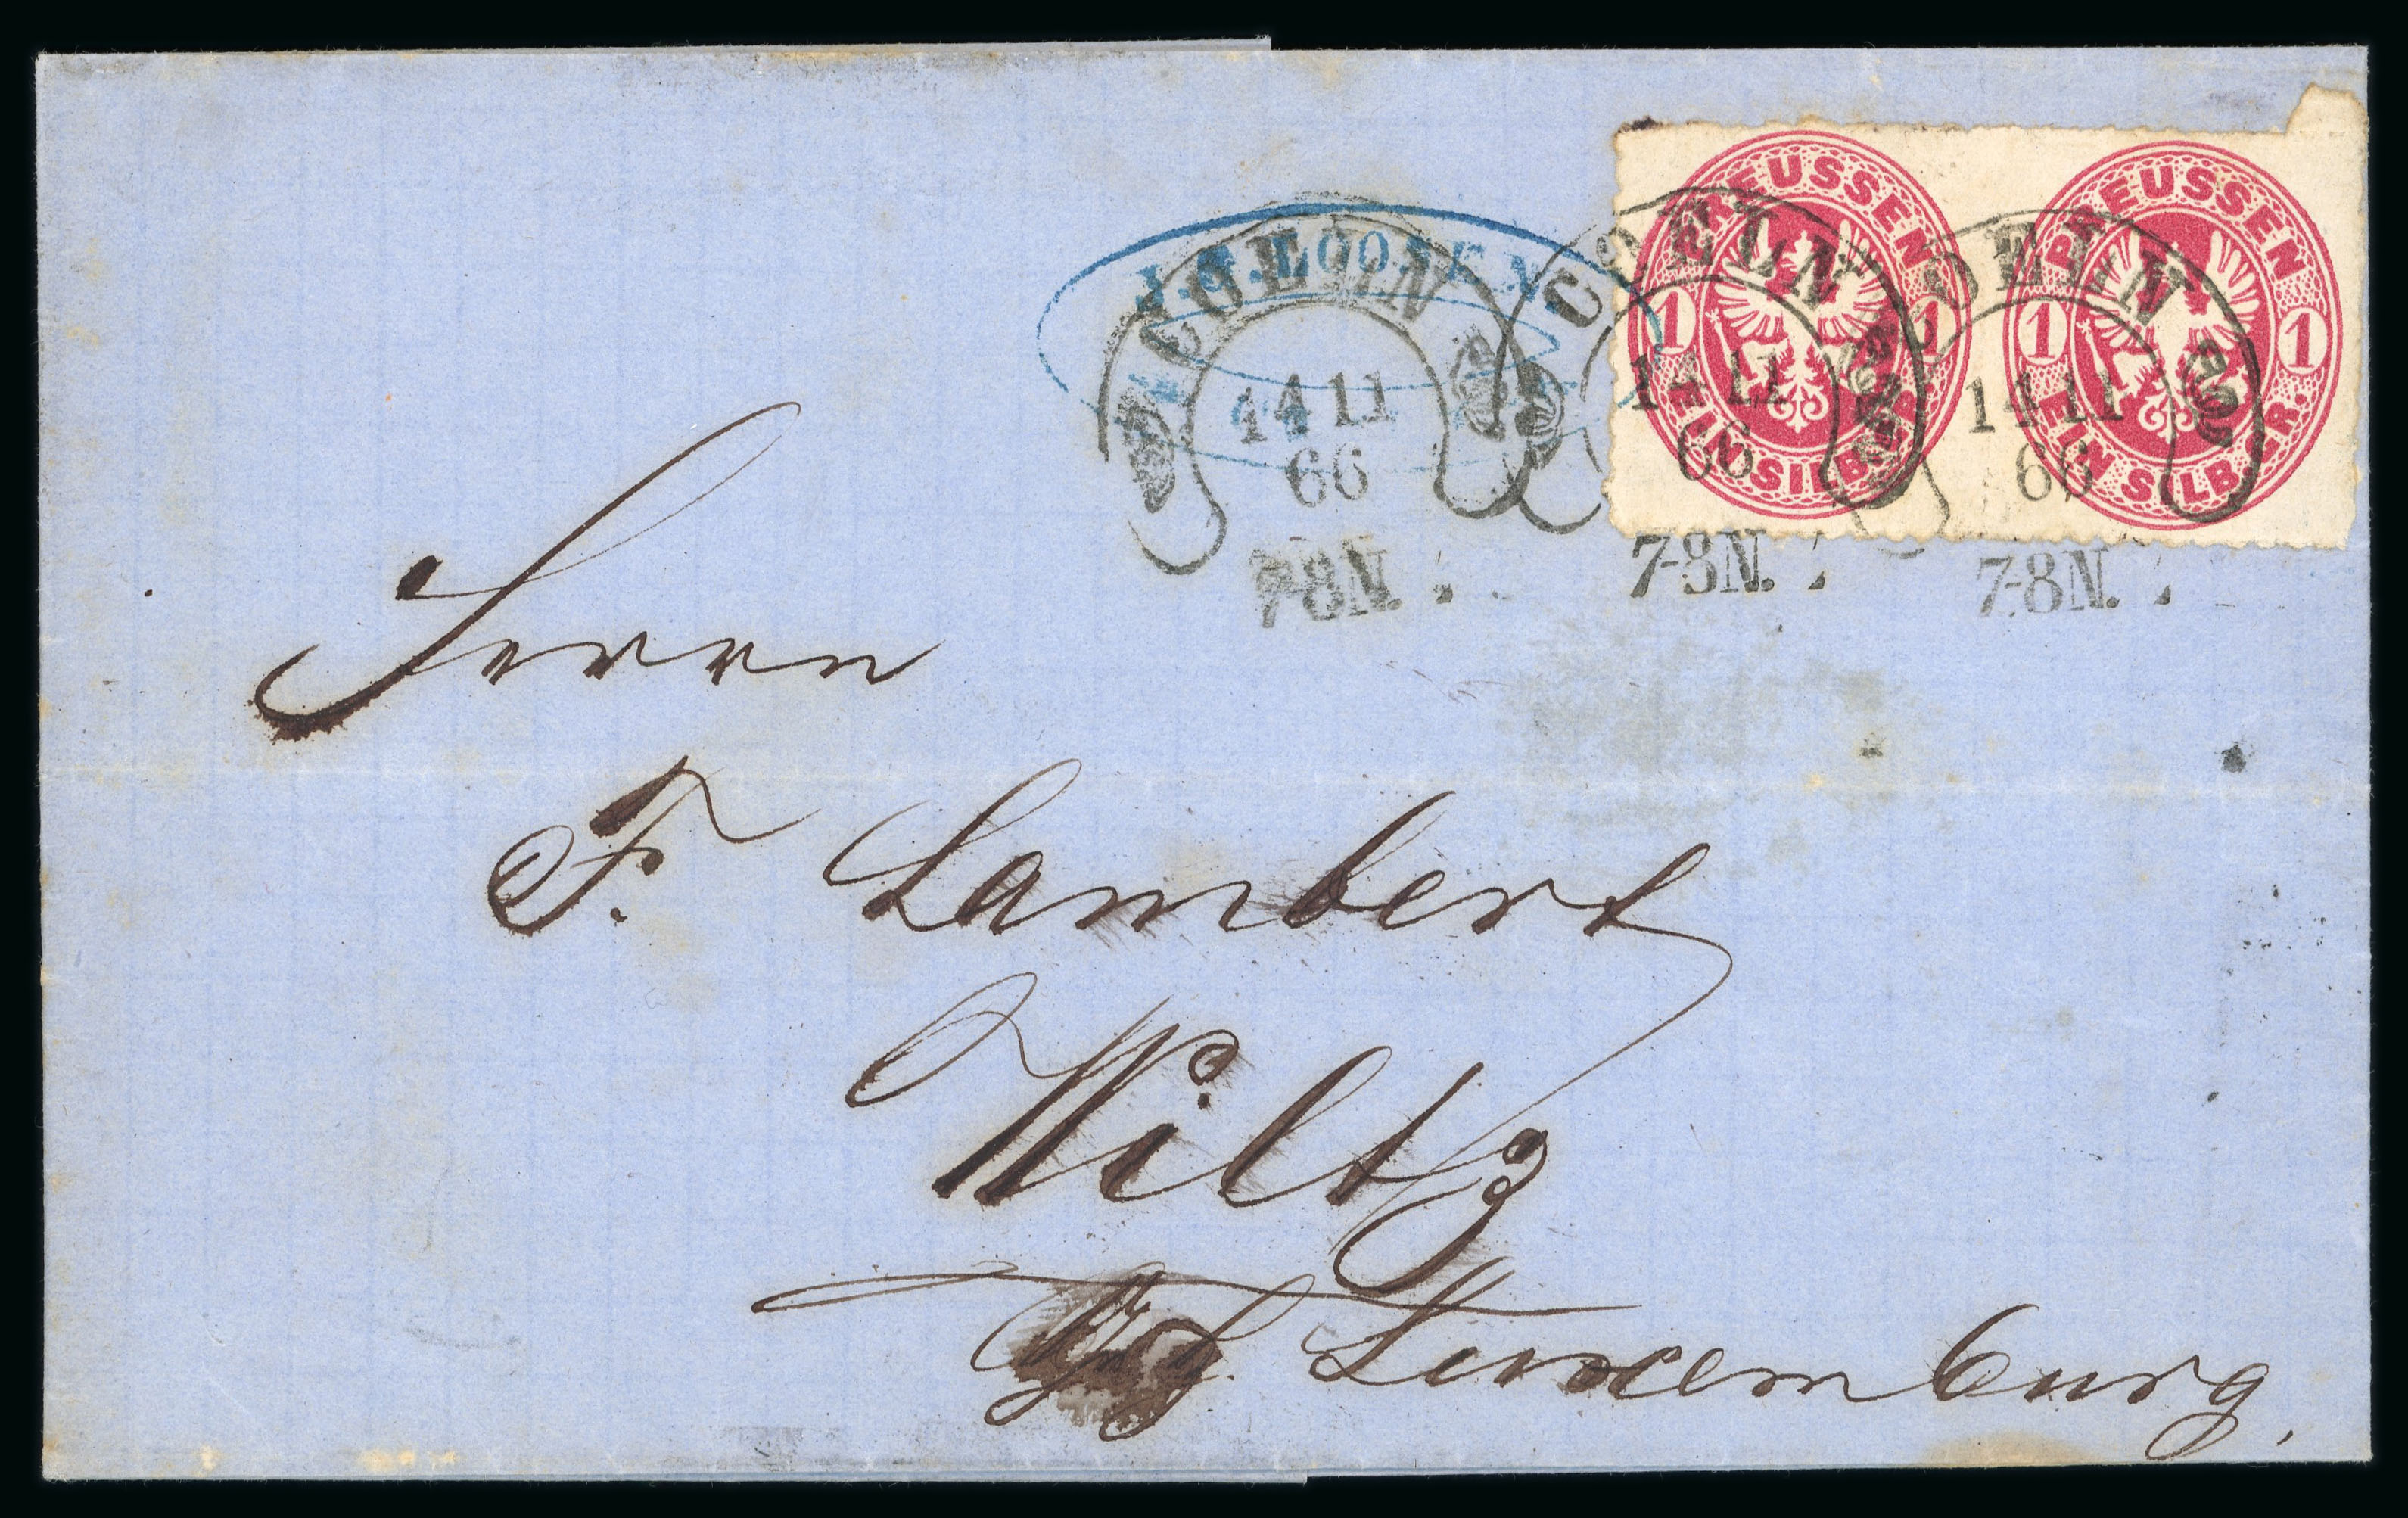 PREUSSEN
1 1
EIN SILB. GR.
PREUSSEN
1 1
EIN SILB. GR.
COELN
14 11
66
7-8N.
COELN
14 11
66
7-8N.
COELN
14 11
66
7-8N.
Herrn
F. Lambert
Wiltz
Luxemburg.